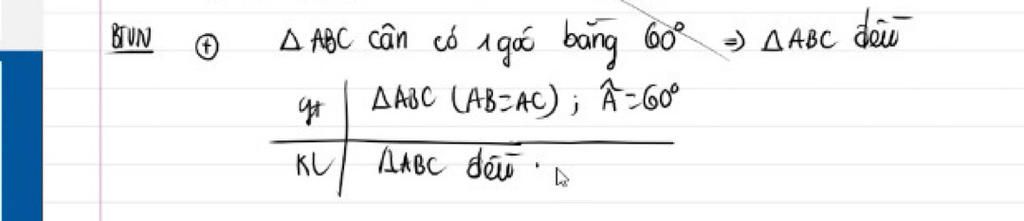 BTVN ⊕ △ABC cân có 1 góc bằng 60° => △ABC đều
gt | △ABC (AB=AC) ; Â=60°
KL | △ABC đều.